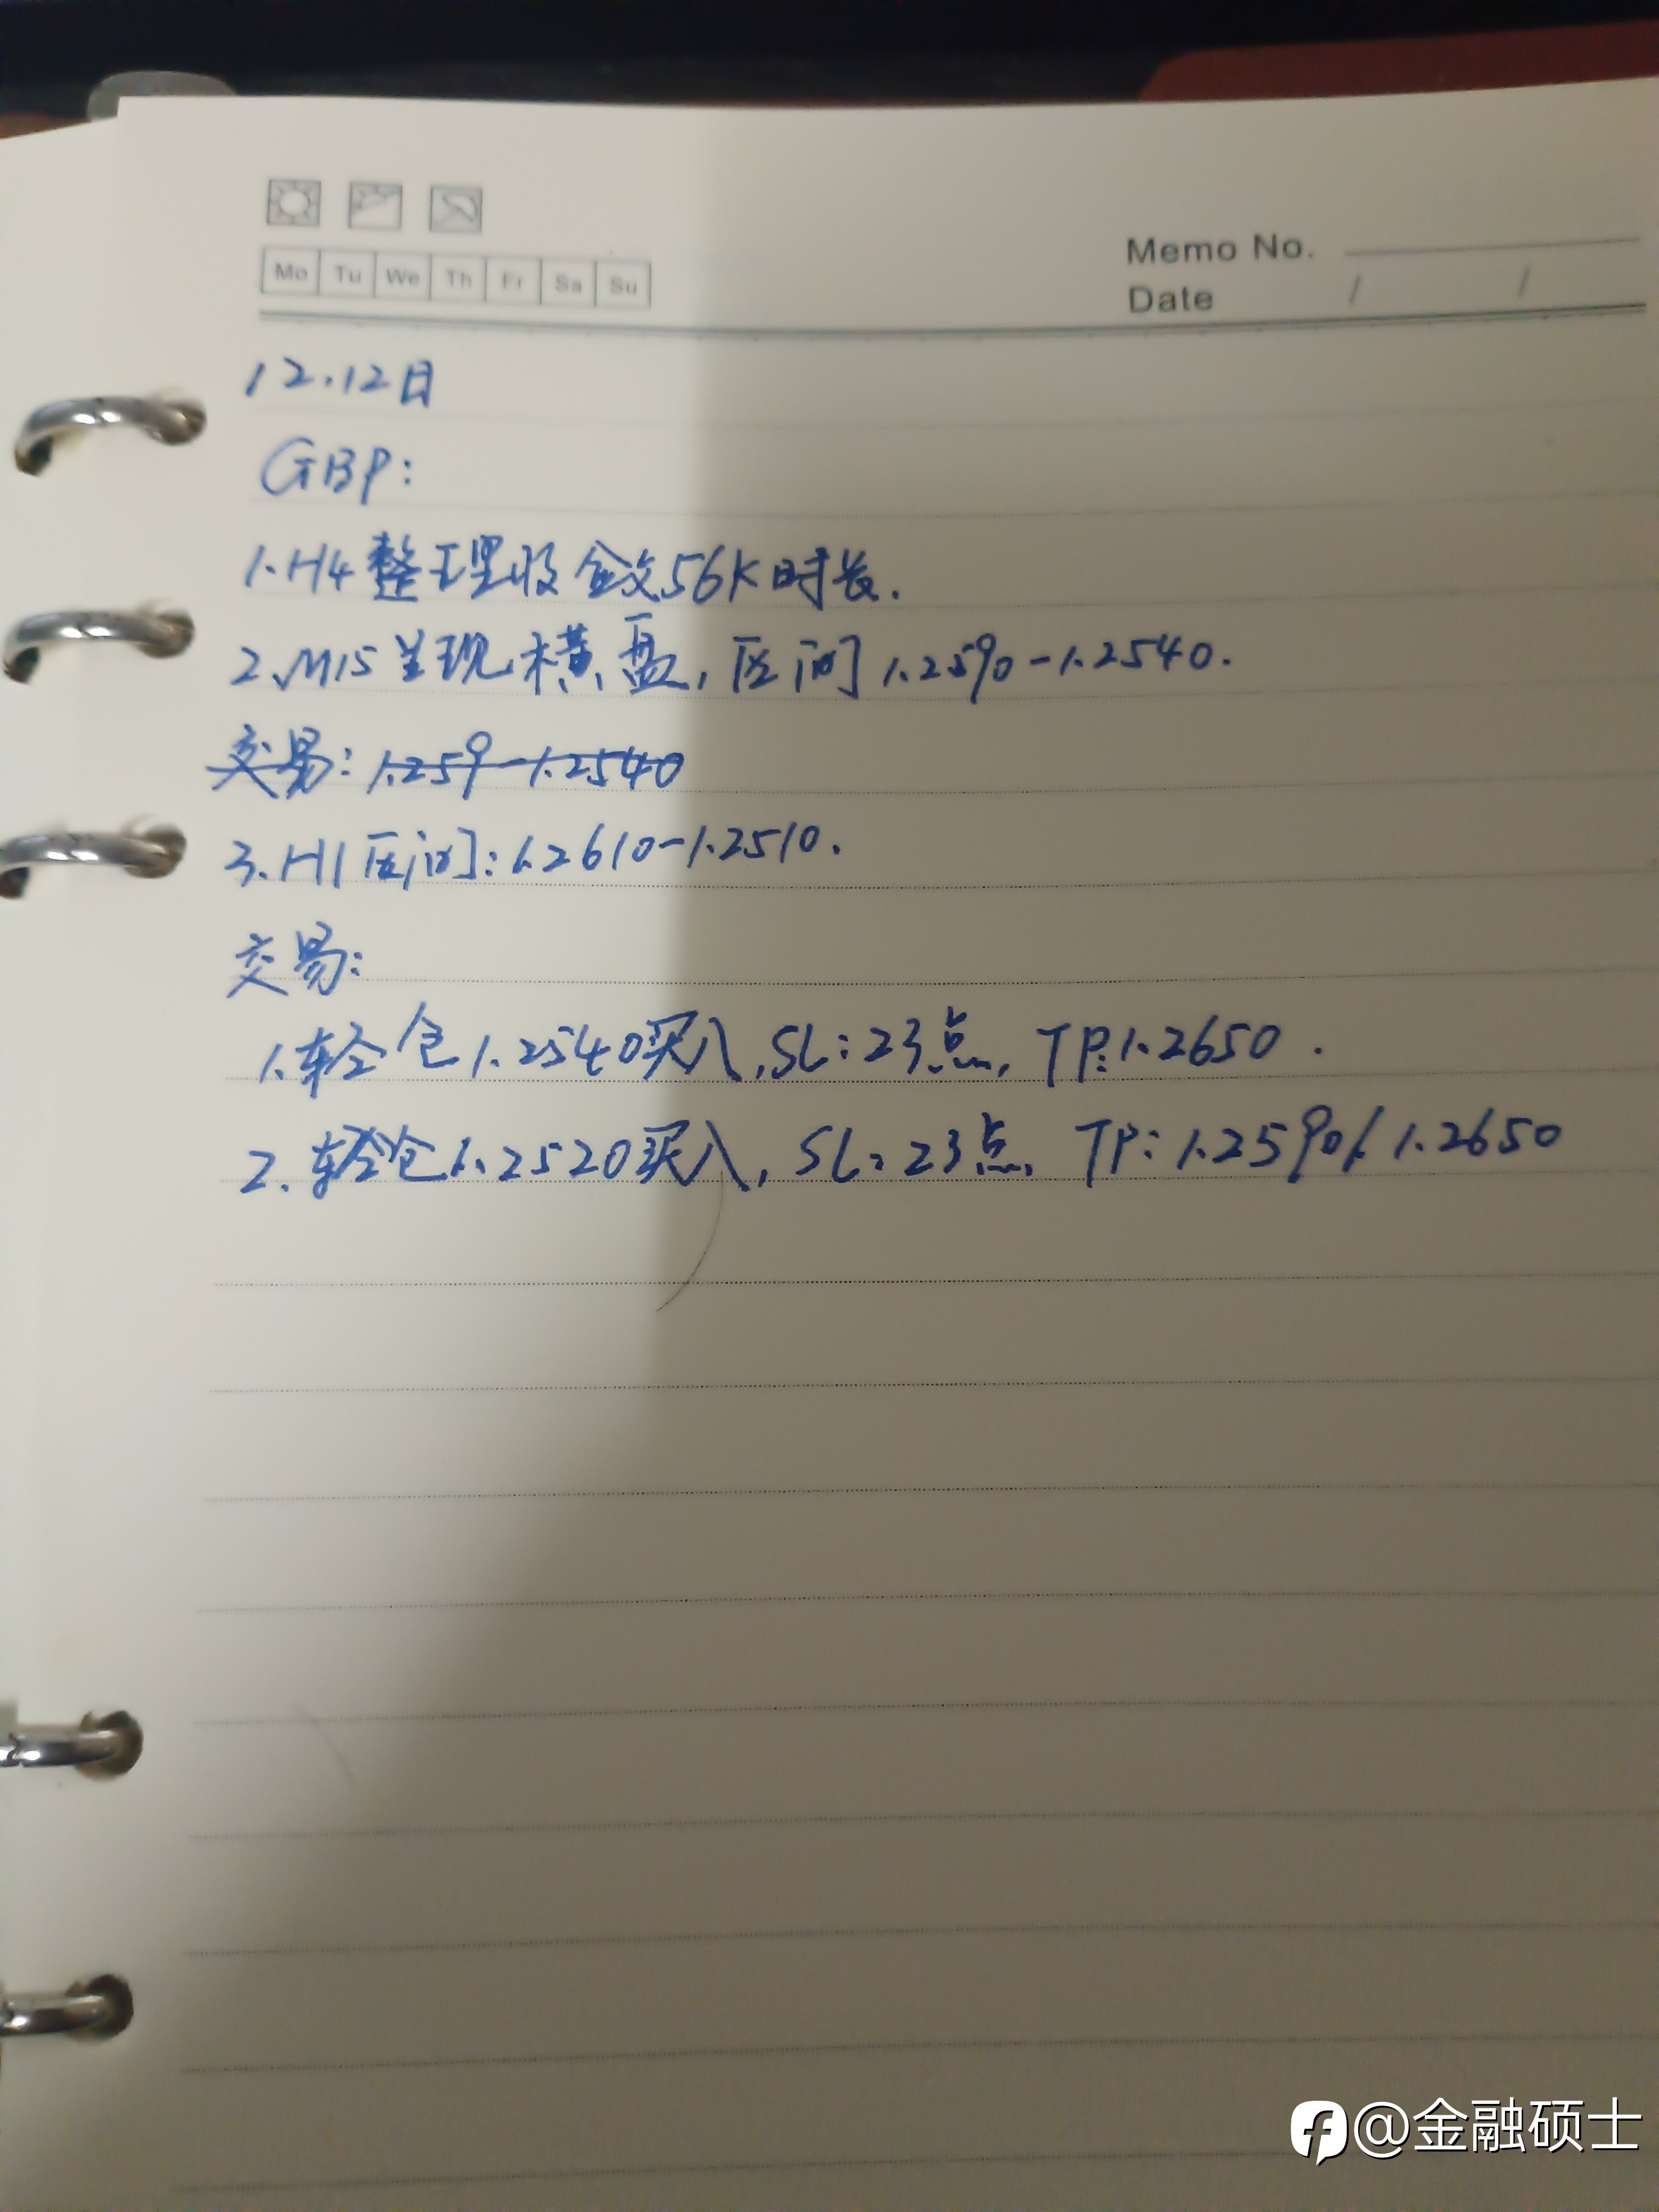 Mo Tu We Th Fr Sa Su
Memo No.
Date / /
12.12日
GBP:
1.H4整理收敛56K时长.
2.M15呈现横盘,区间1.2590-1.2540.
交易:1.259-1.2540
3.H1区间:1.2610-1.2510.
交易:
1.轻仓1.2540买入,SL:23点,TP:1.2650.
2.轻仓1.2520买入,SL:23点, TP:1.2590/1.2650
@金融硕士